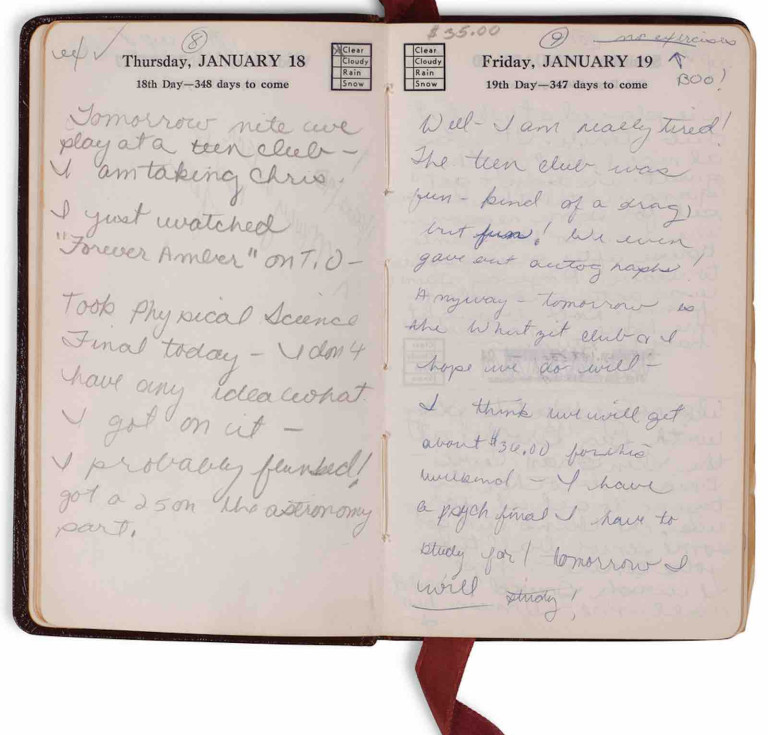 ex ✓
8
Thursday, JANUARY 18
18th Day—348 days to come
Clear
Cloudy
Rain
Snow
Tomorrow nite we
play at a teen club -
I am taking Chris.
I just watched
"Forever Amber" on T.V -
Took Physical Science
Final today - I don't
have any idea what
I got on it -
I probably flunked!
got a 25 on the astronomy
part.
$35.00
9
no exercises
BOO!
Clear
Cloudy
Rain
Snow
Friday, JANUARY 19
19th Day—347 days to come
Well - I am really tired!
The teen club was
fun - kind of a drag,
but fun! We even
gave out autographs!
Anyway - tomorrow is
the Whatzit club & I
hope we do well -
I think we will get
about $36.00 for this
weekend - I have
a psych final I have to
study for! tomorrow I
will study!